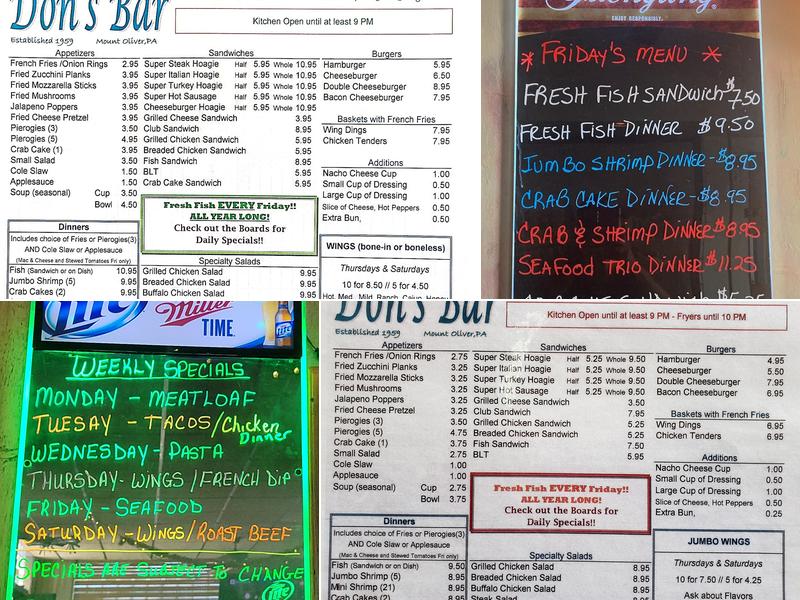 Don's Bar
Established 1959 Mount Oliver,PA
Kitchen Open until at least 9 PM
Appetizers
French Fries /Onion Rings 2.95
Fried Zucchini Planks 3.95
Fried Mozzarella Sticks 3.95
Fried Mushrooms 3.95
Jalapeno Poppers 3.95
Fried Cheese Pretzel 3.95
Pierogies (3) 3.50
Pierogies (5) 4.95
Crab Cake (1) 3.95
Small Salad 3.50
Cole Slaw 1.50
Applesauce 1.50
Soup (seasonal) Cup 3.50
Bowl 4.50
Dinners
Includes choice of Fries or Pierogies(3)
AND Cole Slaw or Applesauce
(Mac & Cheese and Stewed Tomatoes Fri only)
Fish (Sandwich or on Dish) 10.95
Jumbo Shrimp (5) 9.95
Crab Cakes (2) 9.95
Sandwiches
Super Steak Hoagie Half 5.95 Whole 10.95
Super Italian Hoagie Half 5.95 Whole 10.95
Super Turkey Hoagie Half 5.95 Whole 10.95
Super Hot Sausage Half 5.95 Whole 10.95
Cheeseburger Hoagie Half 5.95 Whole 10.95
Grilled Cheese Sandwich 3.95
Club Sandwich 8.95
Grilled Chicken Sandwich 5.95
Breaded Chicken Sandwich 5.95
Fish Sandwich 8.95
BLT 5.95
Crab Cake Sandwich 5.95
Fresh Fish EVERY Friday!!
ALL YEAR LONG!
Check out the Boards for
Daily Specials!!
Specialty Salads
Grilled Chicken Salad 9.95
Breaded Chicken Salad 9.95
Buffalo Chicken Salad 9.95
Burgers
Hamburger 5.95
Cheeseburger 6.50
Double Cheeseburger 8.95
Bacon Cheeseburger 7.95
Baskets with French Fries
Wing Dings 7.95
Chicken Tenders 7.95
Additions
Nacho Cheese Cup 1.00
Small Cup of Dressing 0.50
Large Cup of Dressing 1.00
Slice of Cheese, Hot Peppers 0.50
Extra Bun, 0.50
WINGS (bone-in or boneless)
Thursdays & Saturdays
10 for 8.50 // 5 for 4.50
Hot, Med, Mild, Ranch, Cajun, Honey
Yuengling.
ENJOY RESPONSIBLY.
* FRIDAY'S MENU *
FRESH FISH SANDWICH $7.50
FRESH FISH DINNER $9.50
JUMBO SHRIMP DINNER-$8.95
CRAB CAKE DINNER-$8.95
CRAB & SHRIMP DINNER $8.95
SEAFOOD TRIO DINNER $11.25
Lite
Miller
TIME.
Lite
WEEKLY SPECIALS
MONDAY - MEATLOAF
TUESAY - TACOS/Chicken Dinner
WEDNESDAY - PASTA
THURSDAY - WINGS / FRENCH DIP
FRIDAY - SEAFOOD
SATURDAY - WINGS/ROAST BEEF
SPECIALS ARE SUBJECT TO CHANGE
Lite
Don's Bar
Established 1959 Mount Oliver,PA
Kitchen Open until at least 9 PM - Fryers until 10 PM
Appetizers
French Fries /Onion Rings 2.75
Fried Zucchini Planks 3.25
Fried Mozzarella Sticks 3.25
Fried Mushrooms 3.25
Jalapeno Poppers 3.25
Fried Cheese Pretzel 3.25
Pierogies (3) 3.50
Pierogies (5) 4.75
Crab Cake (1) 3.75
Small Salad 2.75
Cole Slaw 1.00
Applesauce 1.00
Soup (seasonal) Cup 2.75
Bowl 3.75
Dinners
Includes choice of Fries or Pierogies(3)
AND Cole Slaw or Applesauce
(Mac & Cheese and Stewed Tomatoes Fri only)
Fish (Sandwich or on Dish) 9.50
Jumbo Shrimp (5) 8.95
Mini Shrimp (21) 8.95
Crab Cakes (2) 8.95
Sandwiches
Super Steak Hoagie Half 5.25 Whole 9.50
Super Italian Hoagie Half 5.25 Whole 9.50
Super Turkey Hoagie Half 5.25 Whole 9.50
Super Hot Sausage Half 5.25 Whole 9.50
Grilled Cheese Sandwich 3.50
Club Sandwich 7.95
Grilled Chicken Sandwich 5.25
Breaded Chicken Sandwich 5.25
Fish Sandwich 7.50
BLT 5.95
Fresh Fish EVERY Friday!!
ALL YEAR LONG!
Check out the Boards for
Daily Specials!!
Specialty Salads
Grilled Chicken Salad 8.95
Breaded Chicken Salad 8.95
Buffalo Chicken Salad 8.95
Steak Salad 8.95
Burgers
Hamburger 4.95
Cheeseburger 5.50
Double Cheeseburger 7.95
Bacon Cheeseburger 6.95
Baskets with French Fries
Wing Dings 6.95
Chicken Tenders 6.95
Additions
Nacho Cheese Cup 1.00
Small Cup of Dressing 0.50
Large Cup of Dressing 1.00
Slice of Cheese, Hot Peppers 0.50
Extra Bun, 0.25
JUMBO WINGS
Thursdays & Saturdays
10 for 7.50 // 5 for 4.25
Ask about Flavors